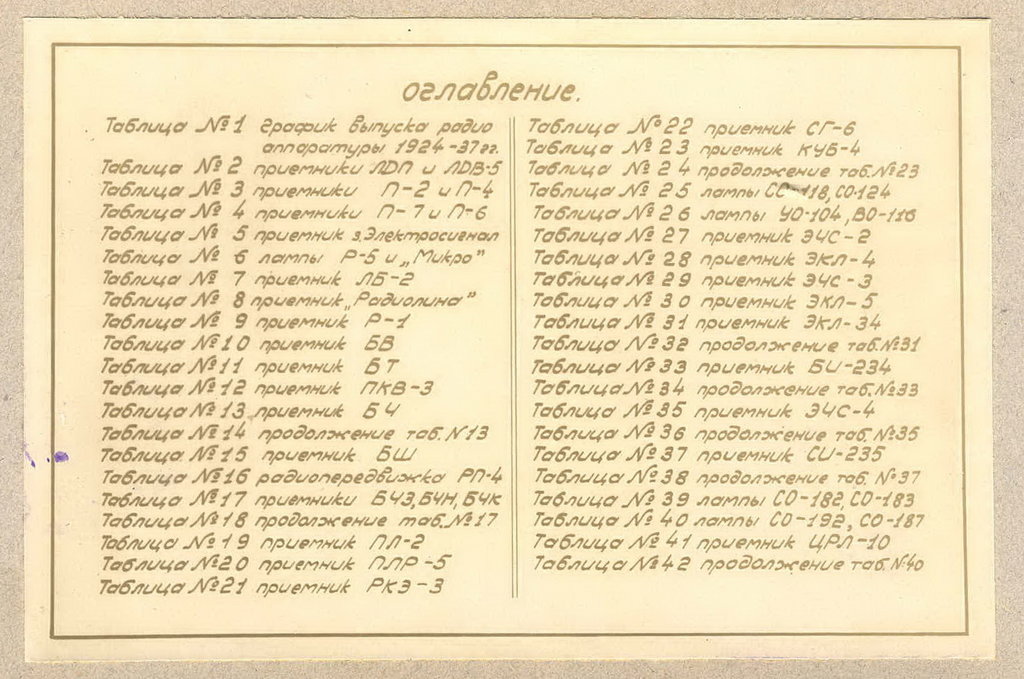 оглавление.
Таблица №1 график выпуска радио
аппаратуры 1924-37гг.
Таблица № 2 приемники ЛДП и ЛДВ-5
Таблица № 3 приемники П-2 и П-4
Таблица № 4 приемники П-7 и П-6
Таблица № 5 приемник з.Электросигнал
Таблица № 6 лампы Р-5 и „Микро"
Таблица № 7 приемник ЛБ-2
Таблица № 8 приемник „Радиолина"
Таблица № 9 приемник Р-1
Таблица №10 приемник БВ
Таблица №11 приемник БТ
Таблица №12 приемник ПКВ-3
Таблица №13 приемник БЧ
Таблица №14 продолжение таб.N13
Таблица №15 приемник БШ
Таблица №16 радиопередвижка РП-4
Таблица №17 приемники БЧЗ,БЧН,БЧК
Таблица №18 продолжение таб.№17
Таблица №19 приемник ПЛ-2
Таблица №20 приемник ПЛР-5
Таблица №21 приемник РКЭ-3
Таблица №22 приемник СГ-6
Таблица №23 приемник КУБ-4
Таблица №24 продолжение таб.№23
Таблица №25 лампы СО-118,СО-124
Таблица №26 лампы УО-104,ВО-116
Таблица №27 приемник ЭЧС-2
Таблица №28 приемник ЭКЛ-4
Таблица №29 приемник ЭЧС-3
Таблица №30 приемник ЭКЛ-5
Таблица №31 приемник ЭКЛ-34
Таблица №32 продолжение таб.№31
Таблица №33 приемник БИ-234
Таблица №34 продолжение таб.№33
Таблица №35 приемник ЭЧС-4
Таблица №36 продолжение таб.№35
Таблица №37 приемник СИ-235
Таблица №38 продолжение таб.№37
Таблица №39 лампы СО-182,СО-183
Таблица №40 лампы СО-192,СО-187
Таблица №41 приемник ЦРЛ-10
Таблица №42 продолжение таб.№40